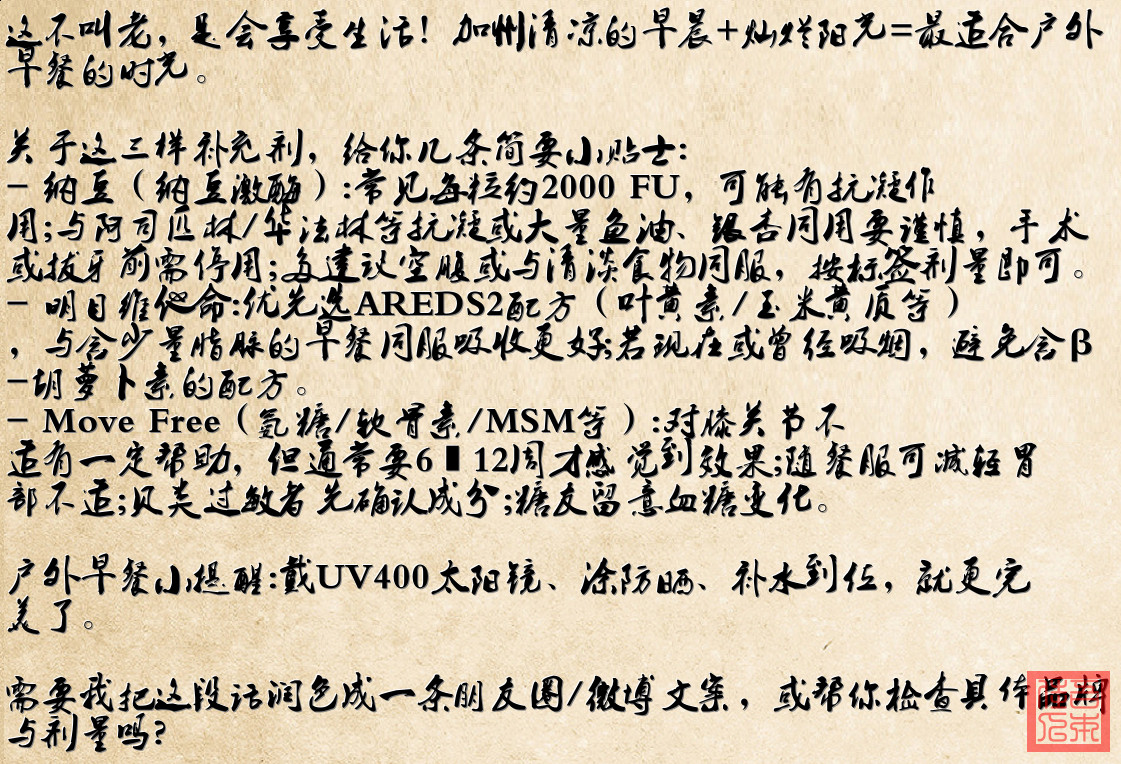 这不叫老，是会享受生活！加州清凉的早晨+灿烂阳光=最适合户外
早餐的时光。
关于这三样补充剂，给你几条简要小贴士：
- 纳豆（纳豆激酶）:常见每粒约2000 FU，可能有抗凝作
用;与阿司匹林/华法林等抗凝或大量鱼油、银杏同用要谨慎，手术
或拔牙前需停用;多建议空腹或与清淡食物同服，按标签剂量即可。
- 明目维他命:优先选AREDS2配方（叶黄素/玉米黄质等）
，与含少量脂肪的早餐同服吸收更好;若现在或曾经吸烟，避免含β
-胡萝卜素的配方。
- Move Free（氨糖/软骨素/MSM等）:对膝关节不
适有一定帮助，但通常要6 12周才感觉到效果;随餐服可减轻胃
部不适;贝类过敏者先确认成分;糖友留意血糖变化。
户外早餐小提醒:戴UV400太阳镜、涂防晒、补水到位，就更完
美了。
需要我把这段话润色成一条朋友圈/微博文案，或帮你检查具体品牌
与剂量吗?